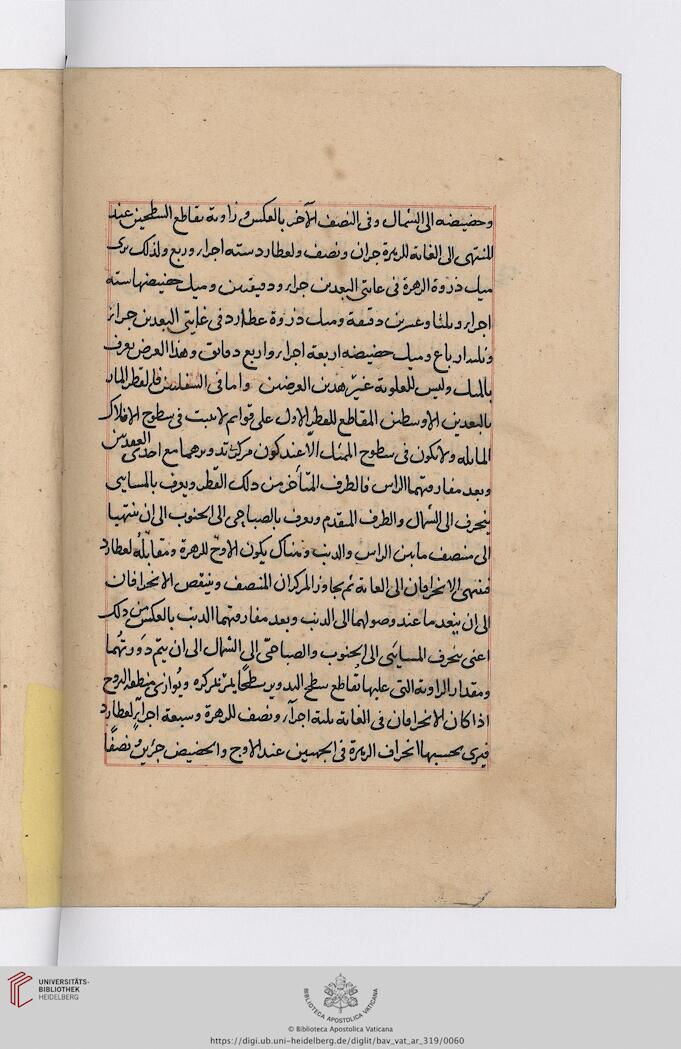 وحضيضه الى الشمال وفى النصف الآخر بالعكس و زاوية تقاطع السطحين عند
المنتهى الى الغاية للزهرة جزان ونصف ولعطارد ستة اجزاء وربع ولذلك يرى
ميل ذروة الزهرة فى غايتى البعدين جزاء ودقيقتين وميل حضيضها ستة
اجزاء وثلثا وعشرين دقيقة وميل ذروة عطارد فى غايتى البعدين جزاء
وثلثة ارباع وميل حضيضه اربعة اجزاء واربع دقائق وهذا العرض يعرف
بالميل وليس للعلوية غير هذين العرضين واما فى السفليين فالقطر المار
بالبعدين الاوسطين المقاطع للقطر الاول على قوائم لا يثبت فى سطوح الافلاك
المايلة ولا يكون فى سطوح الممثل الا عند كون مركز تدويرهما مع احدى العقدتين
وبعد مفارقتهما الراس فالطرف المتأخر من ذلك القطر ويعرف بالمسايى
ينحرف الى الشمال والطرف المقدم ويعرف بالصباحى الى الجنوب الى ان ينتهيا
الى منتصف ما بين الراس والذنب وهناك يكون الاوج للزهرة ومقابله لعطارد
فينتهى الانحرافان الى الغاية ثم يجاوز المركزان المنتصف وينقص الانحرافان
الى ان ينعدما عند وصولهما الى الذنب وبعد مفارقتهما الذنب بالعكس من ذلك
اعنى ينحرف المسايى الى الجنوب والصباحى الى الشمال الى ان يتم دورتهما
ومقدار الزاوية التى عليها تقاطع سطح التدوير سطحا يمر بمركزه ويوازى منطقة البروج
اذا كان الانحرافان فى الغاية ثلثة اجزاء ونصف للزهرة وسبعة اجزاء لعطارد
فيرى بحسبها انحراف الزهرة فى الجهتين عند الاوج والحضيض جزئين ونصفا
UNIVERSITÄTS-
BIBLIOTHEK
HEIDELBERG
BIBLIOTHECA APOSTOLICA VATICANA
© Biblioteca Apostolica Vaticana
https://digi.ub.uni-heidelberg.de/diglit/bav_vat_ar_319/0060